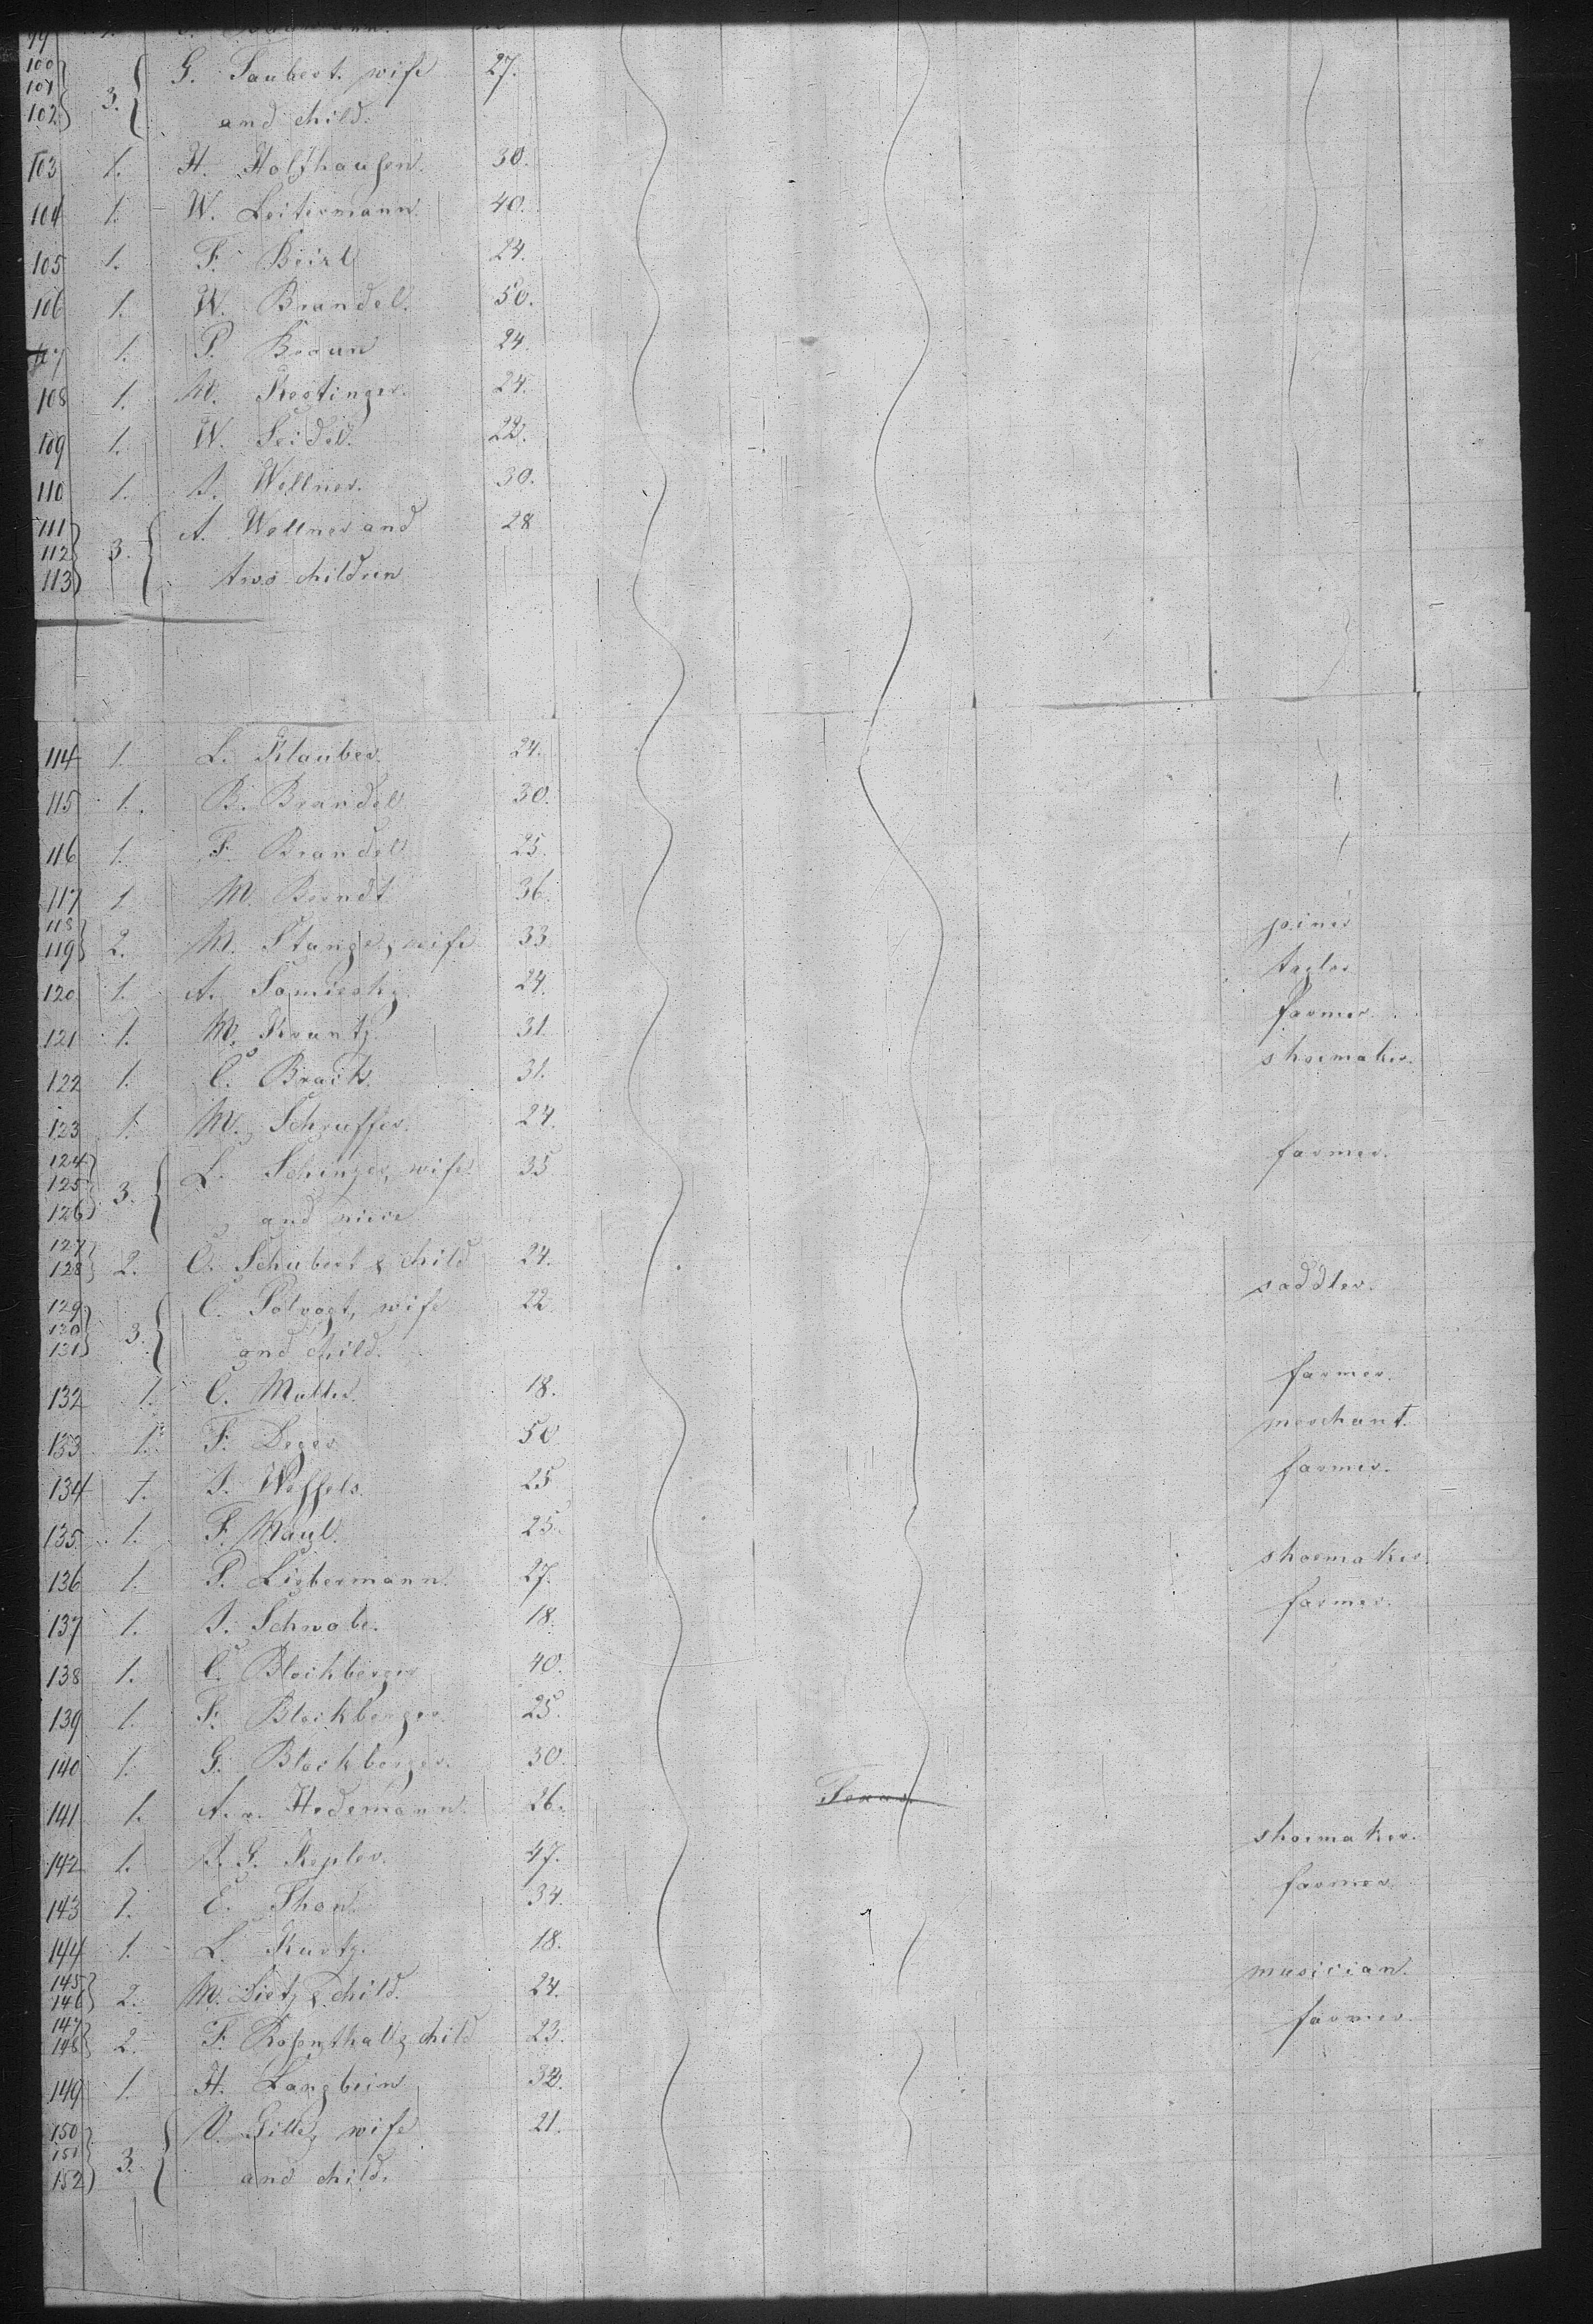 99 1.
100 101 102 3. G. Taubert. wife 27.
and child.
103 1. H. Holzhausen. 30.
104 1. W. Leitermann. 40.
105 1. F. Beirl 24.
106 1. W. Brandel. 50.
107 1. P. Braun 24.
108 1. M. 24.
109 1. W. Seidel. 22.
110 1. J. Wellner. 30.
111 112 113 3. A. Wellner and 28
two children
114 1. L. Klauber. 24.
115 1. B. Brandel 30.
116 1. F. Brandel 25.
117 1. M. Berndt 36.
118 119 2. M. Stange, wife 33 joiner
120 1. A. 24. taylor
121 1. M. Krantz 31. farmer.
122 1. C. Brack. 31. shoemaker.
123 1. M. Schruffer. 24.
124 125 126 3. L. Schinzer, wife 35 farmer.
and niece
127 128 2. C. Schubert & child 24.
129 130 131 3. C. Polvogt, wife 22 saddler.
and child.
132 1. C. Muller. 18. farmer.
133 1. F. Deger 50 merchant.
134 1. J. Weffels. 25 farmer.
135 1. F. Maul. 25.
136 1. P. Liebermann. 27. shoemaker.
137 1. J. Schwabe. 18. farmer.
138 1. C. Blockberger 40.
139 1. F. Blockberger 25.
140 1. G. Blockberger. 30.
141 1. A. v. Hedemann. 26. Texas.
142 1. J. G. Kepler. 47. shoemaker.
143 1. E. Thon. 34. farmer.
144 1. L. Kurtz. 18.
145 146 2. M. Dietz & child. 24. musician.
147 148 2. F. Rosenthal & child 23. farmer.
149 1. H. Langbein 32.
150 151 152 3. V. Gille, wife 21.
and child.